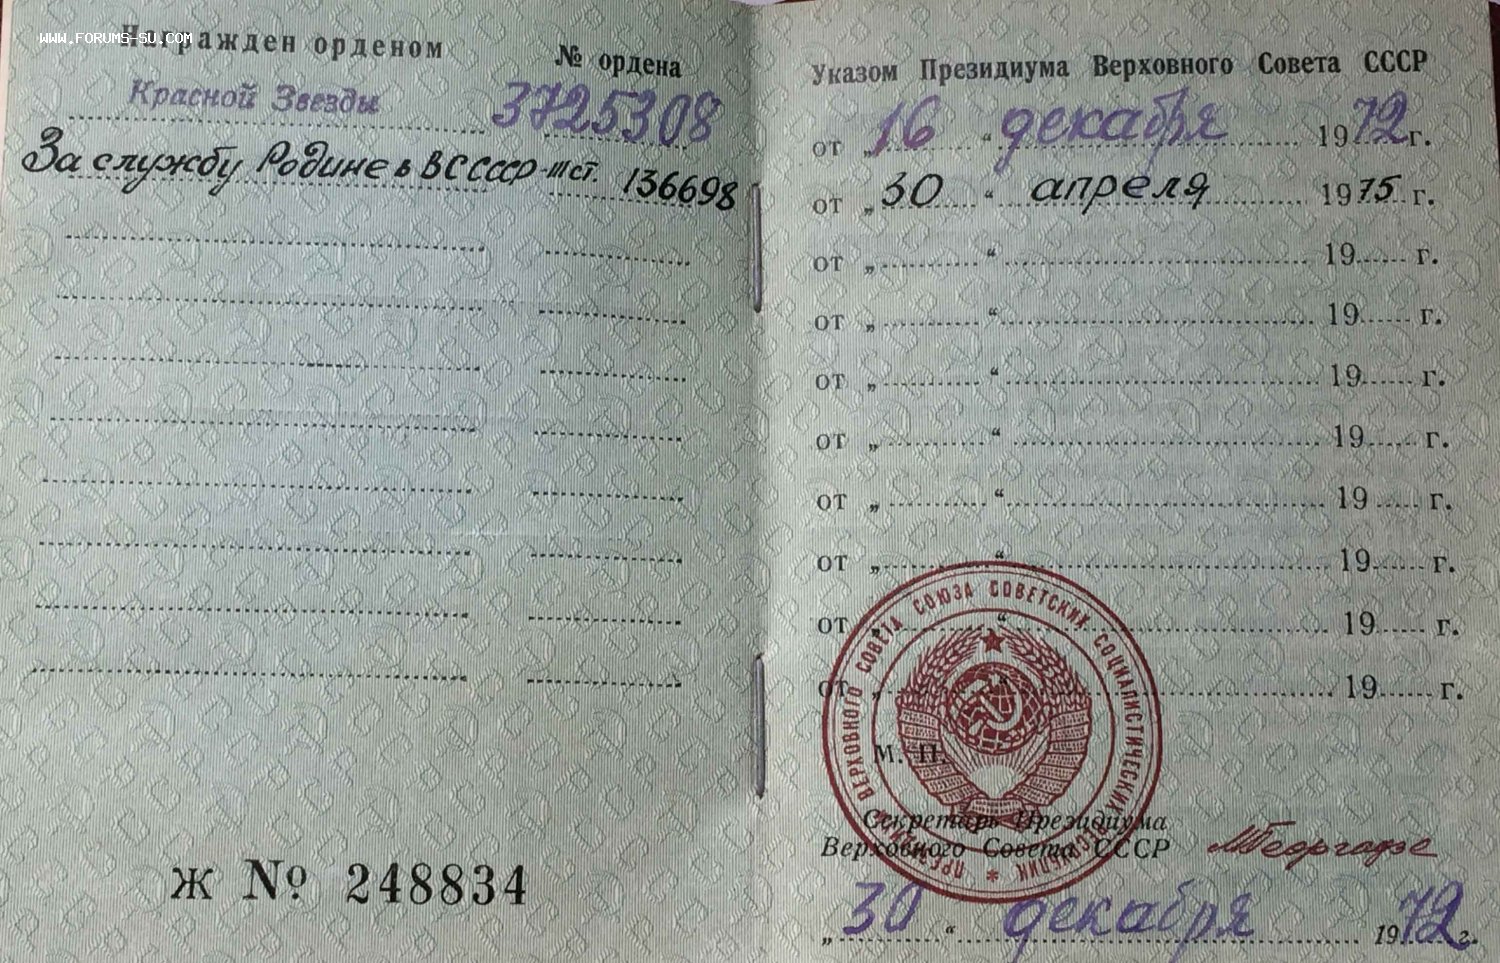 www.forums-su.com
Награжден орденом № ордена
Красной Звезды 3725308
За службу Родине в ВС СССР - III ст. 136698
Ж № 248834
Указом Президиума Верховного Совета СССР
от „16“ декабря 1972 г.
от „30“ апреля 1975 г.
от „ “ 19 г.
от „ “ 19 г.
от „ “ 19 г.
от „ “ 19 г.
от „ “ 19 г.
от „ “ 19 г.
от „ “ 19 г.
от „ “ 19 г.
М. П.
ПРЕЗИДИУМ ВЕРХОВНОГО СОВЕТА СОЮЗА СОВЕТСКИХ СОЦИАЛИСТИЧЕСКИХ РЕСПУБЛИК *
Секретарь Президиума
Верховного Совета СССР МГеоргадзе
„30“ декабря 1972 г.